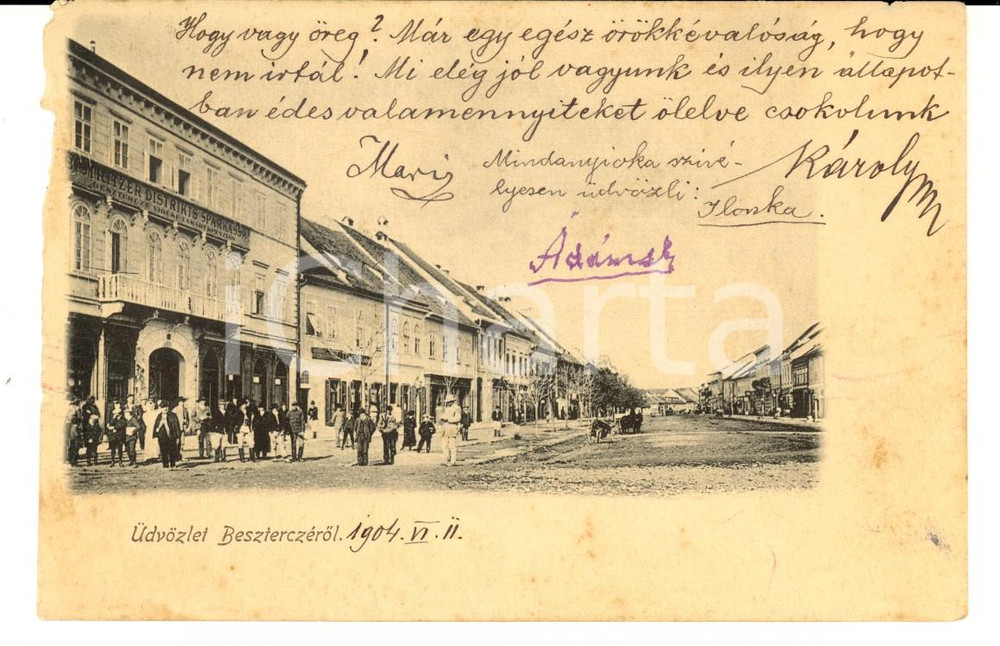 Hogy vagy öreg? Már egy egész örökkévalóság, hogy
nem irtál! Mi elég jól vagyunk és ilyen állapot-
ban édes valamennyiteket ölelve csokolunk
Mariş
Mindanyioka szivé-
lyesen üdvözli:
Ilonka.
Károly
Ádámsk
BISTRITZER DISTRIKTS SPARKASSA
iCharta
Üdvözlet Beszterczéről. 1904. VI. II.